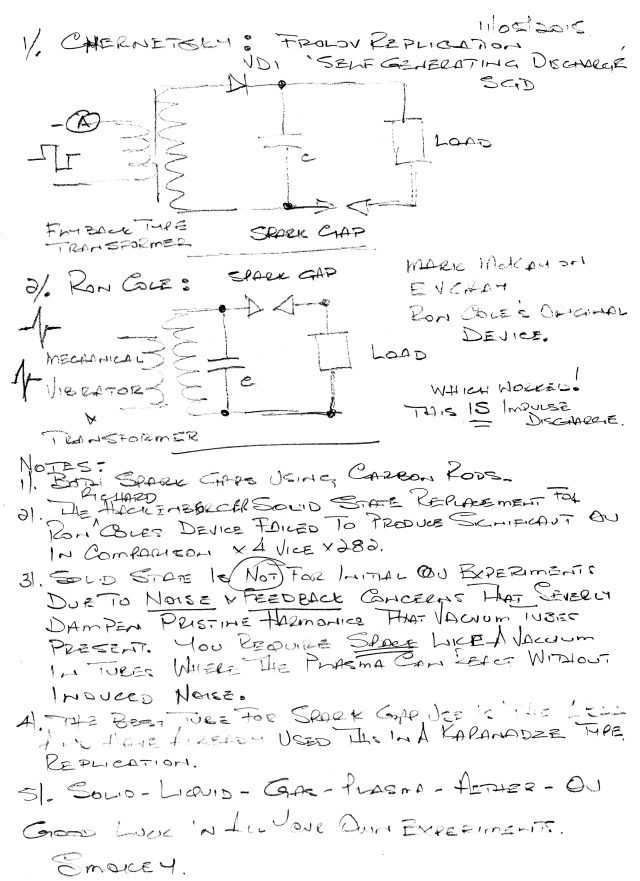 11/05/2015
1/. CHERNETSKY: FROLOV REPLICATION
VD1 'SELF GENERATING DISCHARGE'
SGD
A
C
LOAD
FLYBACK TYPE
TRANSFORMER
SPARK GAP
2/. RON COLE:
SPARK GAP
MARK McKAY ON
EVGRAY
RON COLE'S ORIGINAL
DEVICE.
MECHANICAL
VIBRATOR
&
TRANSFORMER
C
LOAD
WHICH WORKED!
THIS IS IMPULSE
DISCHARGE.
NOTES:
1). BOTH SPARK GAPS USING CARBON RODS.
2). THE RICHARD HACKENBERGER SOLID STATE REPLACEMENT FOR
RON COLES DEVICE FAILED TO PRODUCE SIGNIFICANT OU
IN COMPARISON X4 VICE X282.
3). SOLID STATE IS NOT FOR INITIAL OU EXPERIMENTS
DUE TO NOISE & FEEDBACK CONCERNS THAT SEVERLY
DAMPEN PRISTINE HARMONICS THAT VACUUM TUBES
PRESENT. YOU REQUIRE SPACE LIKE A VACUUM
IN TUBES WHERE THE PLASMA CAN REACT WITHOUT
INDUCED NOISE.
4). THE BEST TUBE FOR SPARK GAP USE IS THE
HAVE ALREADY USED THIS IN A KAPANADZE TYPE
REPLICATION.
5). SOLID - LIQUID - GAS - PLASMA - AETHER - OU
GOOD LUCK IN ALL YOUR OWN EXPERIMENTS.
SMOKEY.